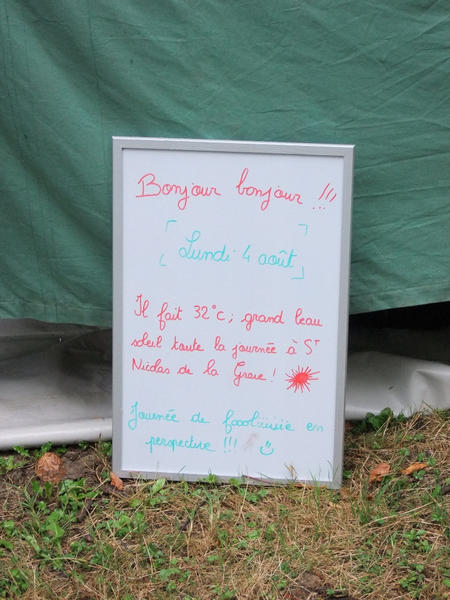 Bonjour bonjour !!!
Lundi 4 août
Il fait 32°c ; grand beau
soleil toute la journée à ST
Nicolas de la Grave !
Journée de foooliiiiiiie en
perspective !!!